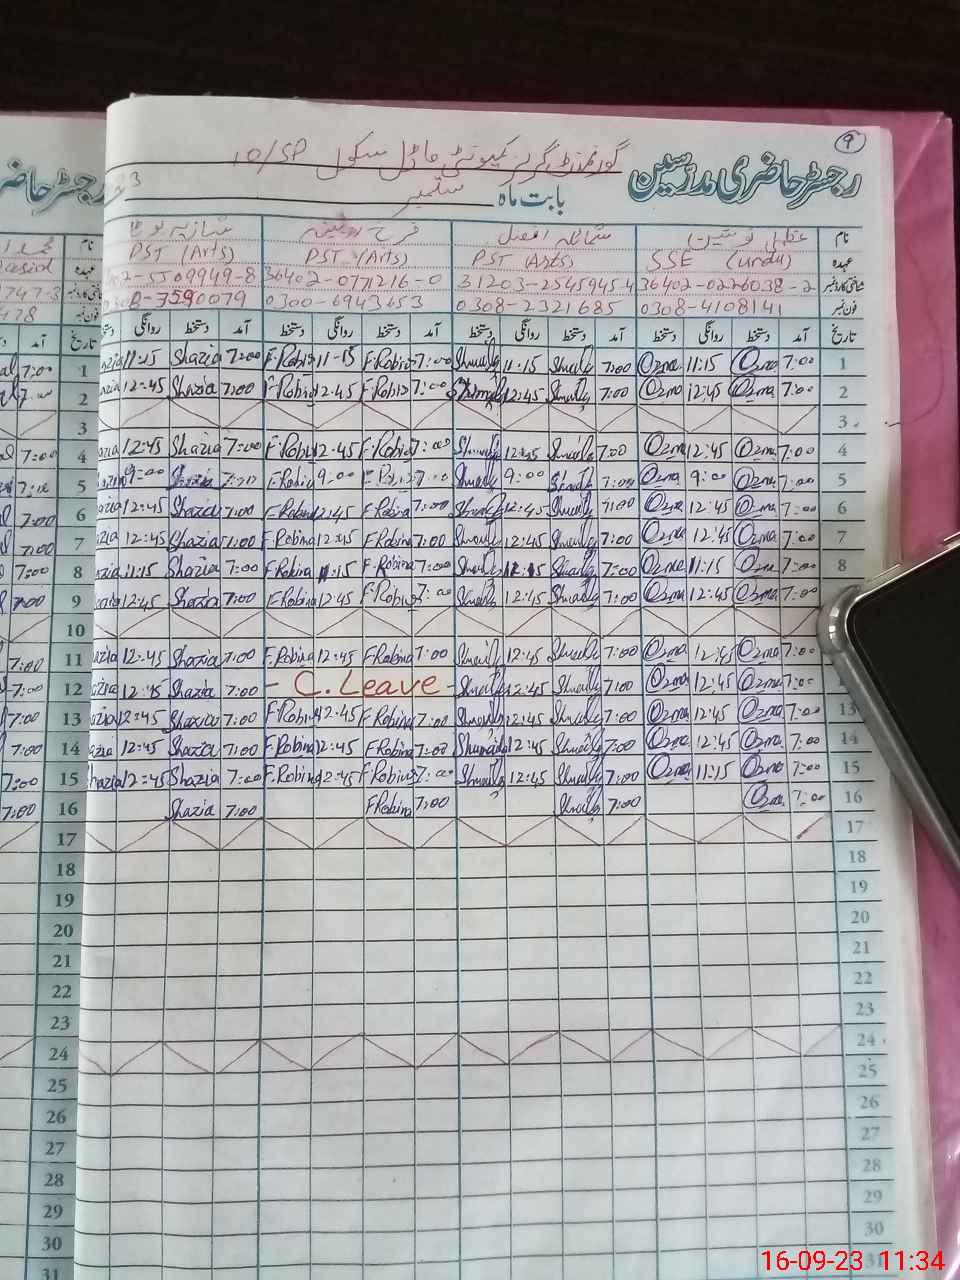 ۹
گورنمنٹ گرلز کمیونٹی ماڈل سکول 10/SP
رجسٹر حاضری مدرسین
بابت ماہ ستمبر
نام عظمیٰ نوشین شمائلہ افضل فرح روبینہ شازیہ
عہدہ SSE (urdu) PST (Arts) PST (Arts) PST (Arts)
شناختی کارڈ نمبر 36402-0226038-2 31203-2545945-4 36402-0771216-0 -5509949-8
فون نمبر 0308-4108141 0308-2321685 0300-6943653
تاریخ آمد دستخط روانگی دستخط آمد دستخط روانگی دستخط آمد دستخط روانگی دستخط آمد دستخط روانگی
1 7:00 Ozma 11:15 Ozma 7:00 Shumaila 11:15 Shumaila 7:00 F.Robina 11-15 F.Robina 7:00 Shazia 11:15
2 7:00 Ozma 12:45 Ozma 7:00 Shumaila 12:45 Shumaila 7:00 F.Robina 12:45 F.Robina 7:00 Shazia 12:45
3
4 7:00 Ozma 12:45 Ozma 7:00 Shumaila 12:45 Shumaila 7:00 F.Robina 12:45 F.Robina 7:00 Shazia 12:45
5 7:00 Ozma 9:00 Ozma 7:00 Shumaila 9:00 Shumaila 7:00 F.Robina 9:00 F.Robina 7:00 Shazia 9:00
6 7:00 Ozma 12:45 Ozma 7:00 Shumaila 12:45 Shumaila 7:00 F.Robina 12:45 F.Robina 7:00 Shazia 12:45
7 7:00 Ozma 12:45 Ozma 7:00 Shumaila 12:45 Shumaila 7:00 F.Robina 12:45 F.Robina 7:00 Shazia 12:45
8 7:00 Ozma 11:15 Ozma 7:00 Shumaila Shumaila 7:00 F.Robina 11:15 F.Robina 7:00 Shazia 11:15
9 7:00 Ozma 12:45 Ozma 7:00 Shumaila 12:45 Shumaila 7:00 F.Robina 12:45 F.Robina 7:00 Shazia 12:45
10
11 7:00 Ozma 12:45 Ozma 7:00 Shumaila 12:45 Shumaila 7:00 F.Robina 12:45 F.Robina 7:00 Shazia 12:45
12 7:00 Ozma 12:45 Ozma 7:00 Shumaila 12:45 Shumaila - C. Leave - 7:00 Shazia 12:45
13 7:00 Ozma 12:45 Ozma 7:00 Shumaila 12:45 Shumaila 7:00 F.Robina 12:45 F.Robina 7:00 Shazia 12:45
14 7:00 Ozma 12:45 Ozma 7:00 Shumaila 12:45 Shumaila 7:00 F.Robina 12:45 F.Robina 7:00 Shazia 12:45
15 7:00 Ozma 11:15 Ozma 7:00 Shumaila 12:45 Shumaila 7:00 F.Robina 12:45 F.Robina 7:00 Shazia 12:45 Shazia
16 7:00 Ozma 7:00 Shumaila 7:00 F.Robina 7:00 Shazia
17
18
19
20
21
22
23
24
25
26
27
28
29
30
31
16-09-23 11:34